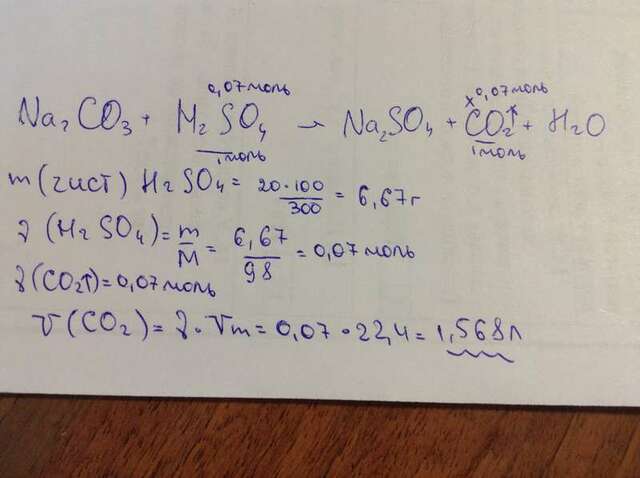 0,07моль x 0,07моль
Na₂CO₃ + H₂SO₄ → Na₂SO₄ + CO₂↑ + H₂O
1моль 1моль
m(чист) H₂SO₄ = 20·100/300 = 6,67г
ν(H₂SO₄) = m/M = 6,67/98 = 0,07моль
ν(CO₂↑) = 0,07моль
V(CO₂) = ν·Vm = 0,07·22,4 = 1,568л